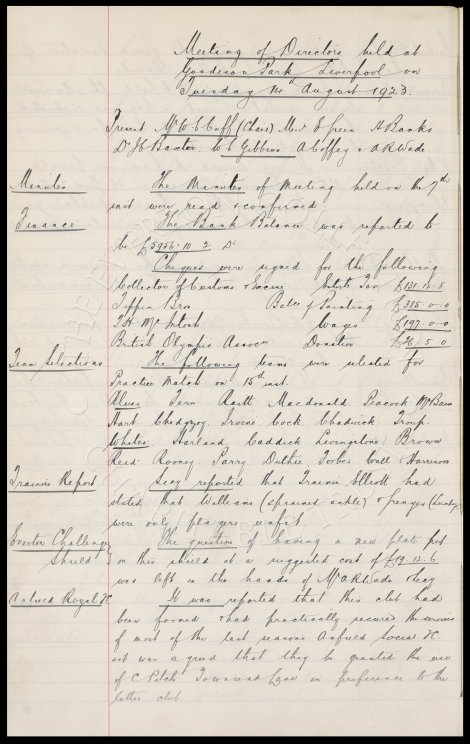 Meeting of Directors held at
Goodison Park Liverpool on
Tuesday 14th August 1923.
Present Mr W C Cuff (Chair) Messrs E Green A Banks
Dr J C Baxter, W C Gibbins A Coffey & A R Wade
Minutes
The Minutes of Meeting held on the 7th
inst were read & confirmed
Finance
The Bank Balance was reported to
be £5956.10.2 Dr
Cheques were signed for the following
Collector of Customs & Excise Ents Tax £131.12.8
Tippin Bros Bal of Printing £385.0.0
T H McIntosh Wages £197.0.0
British Olympic Assocn Donation £26.5.0
Team Selections
The following teams were selected for
Practice Match on 15th inst.
Blues Fern Raitt Macdonald Peacock McBain
Hart Chedgzoy Irvine Cock Chadwick Troup.
Whites Harland Caddick Livingstone Brown
Reid Rooney Parry Duthie Forbes Wall & Harrison
Trainers Report
Secy reported that Trainer Elliott had
stated that Williams (sprained ankle) &
were only players unfit.
Everton Challenge
Shield
The question of having a new plate put
on this shield at a suggested cost of £19.12.6
was left in the hands of Mr A R Wade & Secy
Anfield Royal FC
It was reported that this club had
been formed & had practically secured the services
of most of the last seasons Anfield Social FC
& it was agreed that they be granted the use
of C Pitch Townsend Lane in preference to the
latter club.